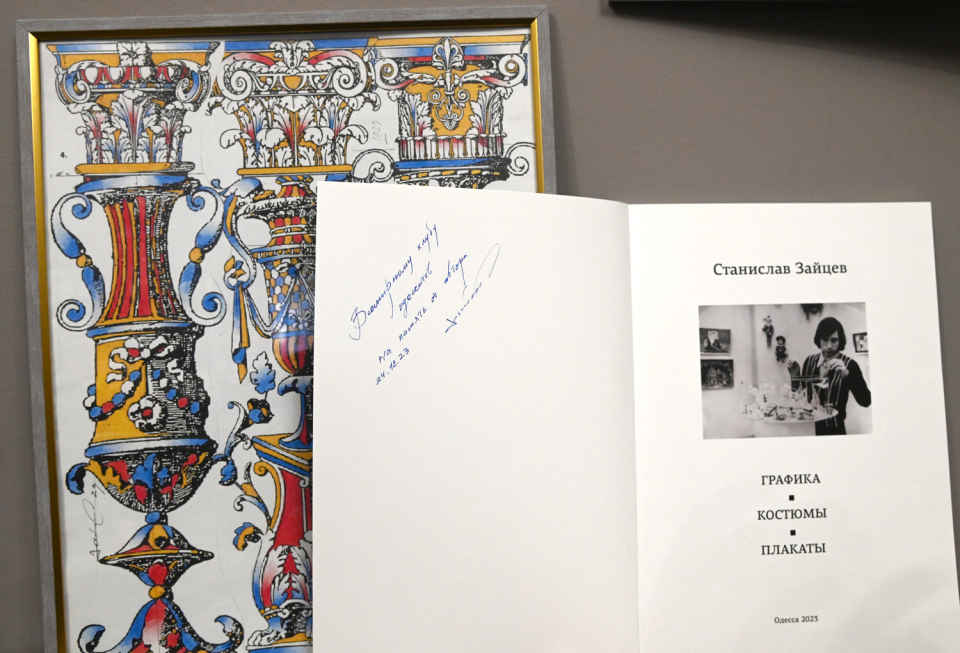 Всемирному клубу
одесситов
на память от автора
24.12.23
Станислав Зайцев
ГРАФИКА
КОСТЮМЫ
ПЛАКАТЫ
Одесса 2023